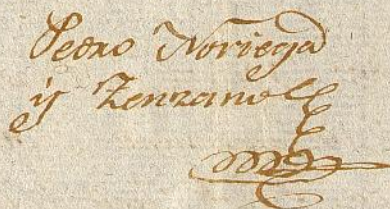 Pedro Noriega
y Zenzano